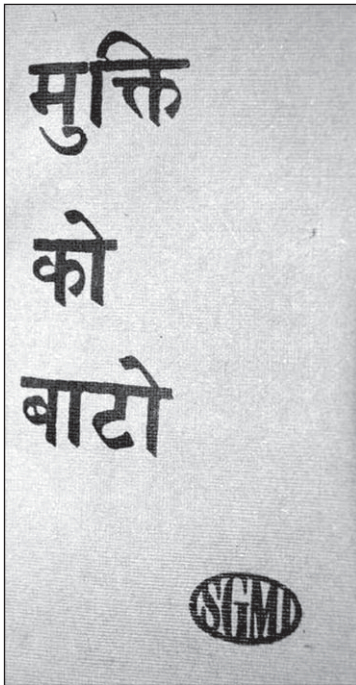 मुक्ति
को
बाटो
SGMI